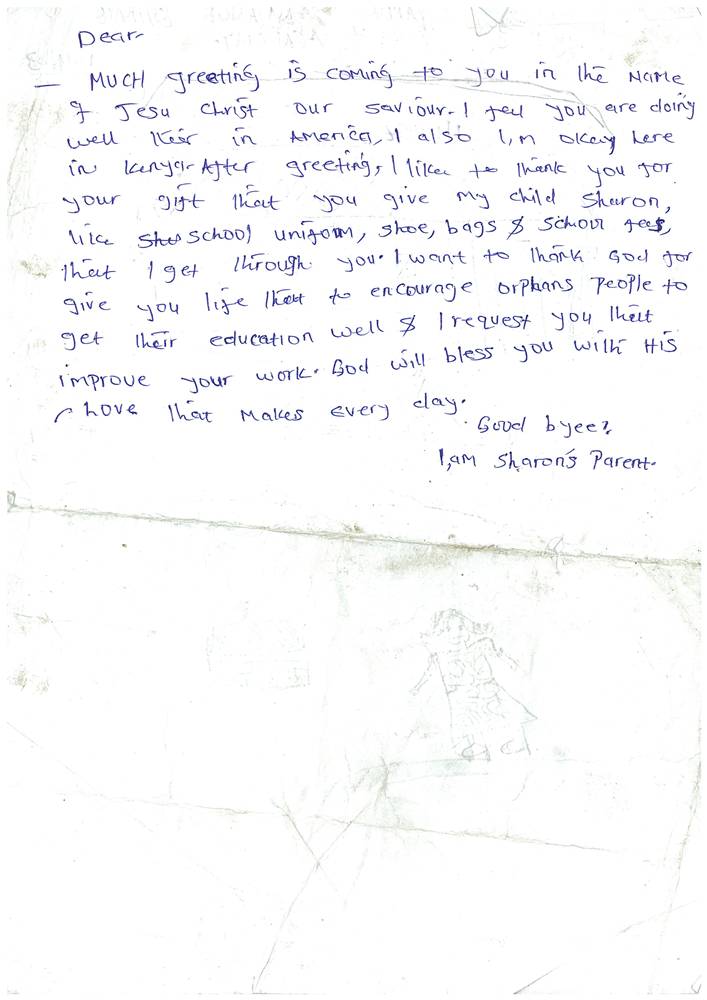 Dear-
— MUCH greeting is coming to you in the NAME
of Jesu Christ our saviour. I feel you are doing
well their in AMERICA, I also I,m okay here
in Kenya. After greeting, I like to thank you for
your gift that you give my child Sharon,
like school uniform, shoe, bags & school fees,
that I get through you. I want to thank God for
give you life that to encourage orphans People to
get their education well & I request you that
improve your work. God will bless you with His
Love that makes every day.
Good byee?
I,am Sharon's Parent.